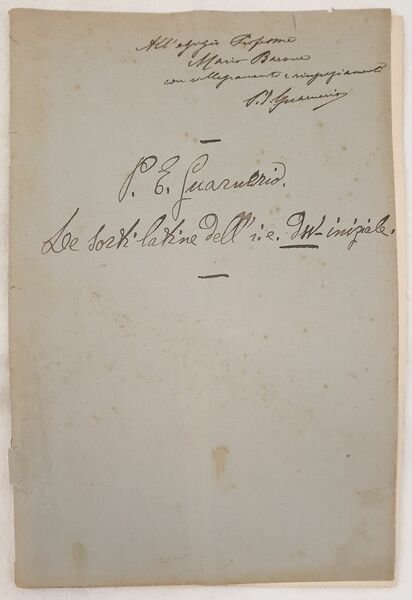 All'egregio Professore
Mario Barone
con rallegramenti e ringraziamenti
P. E. Guarnerio
P. E. Guarnerio.
Le sorti latine dell' i. e. dw- iniziale.